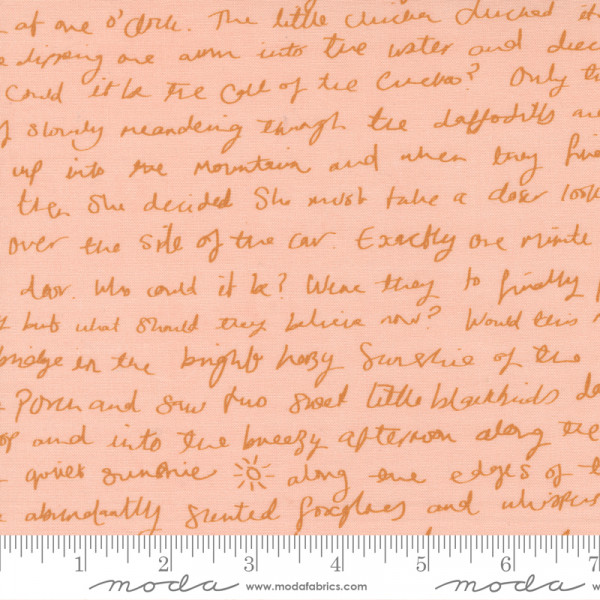 at one o'clock. The little chicken clucked
dipping one arm into the water and
Could it be the Call of the Cuckoo? Only
slowly meandering though the daffodils
up into the mountain and when they
then She decided She must take a closer look
over the side of the car. Exactly one minute
door. Who could it be? Were they to finally
but what should they believe now? Would this
bridge in the bright hazy Sunshine of the
Porch and saw two sweet little blackbirds
and into the breezy afternoon along the
quiet sunshine along the edges of
abundantly scented foxgloves and
1 2 3 4 5 6 7
moda www.modafabrics.com moda www.modafabrics.com